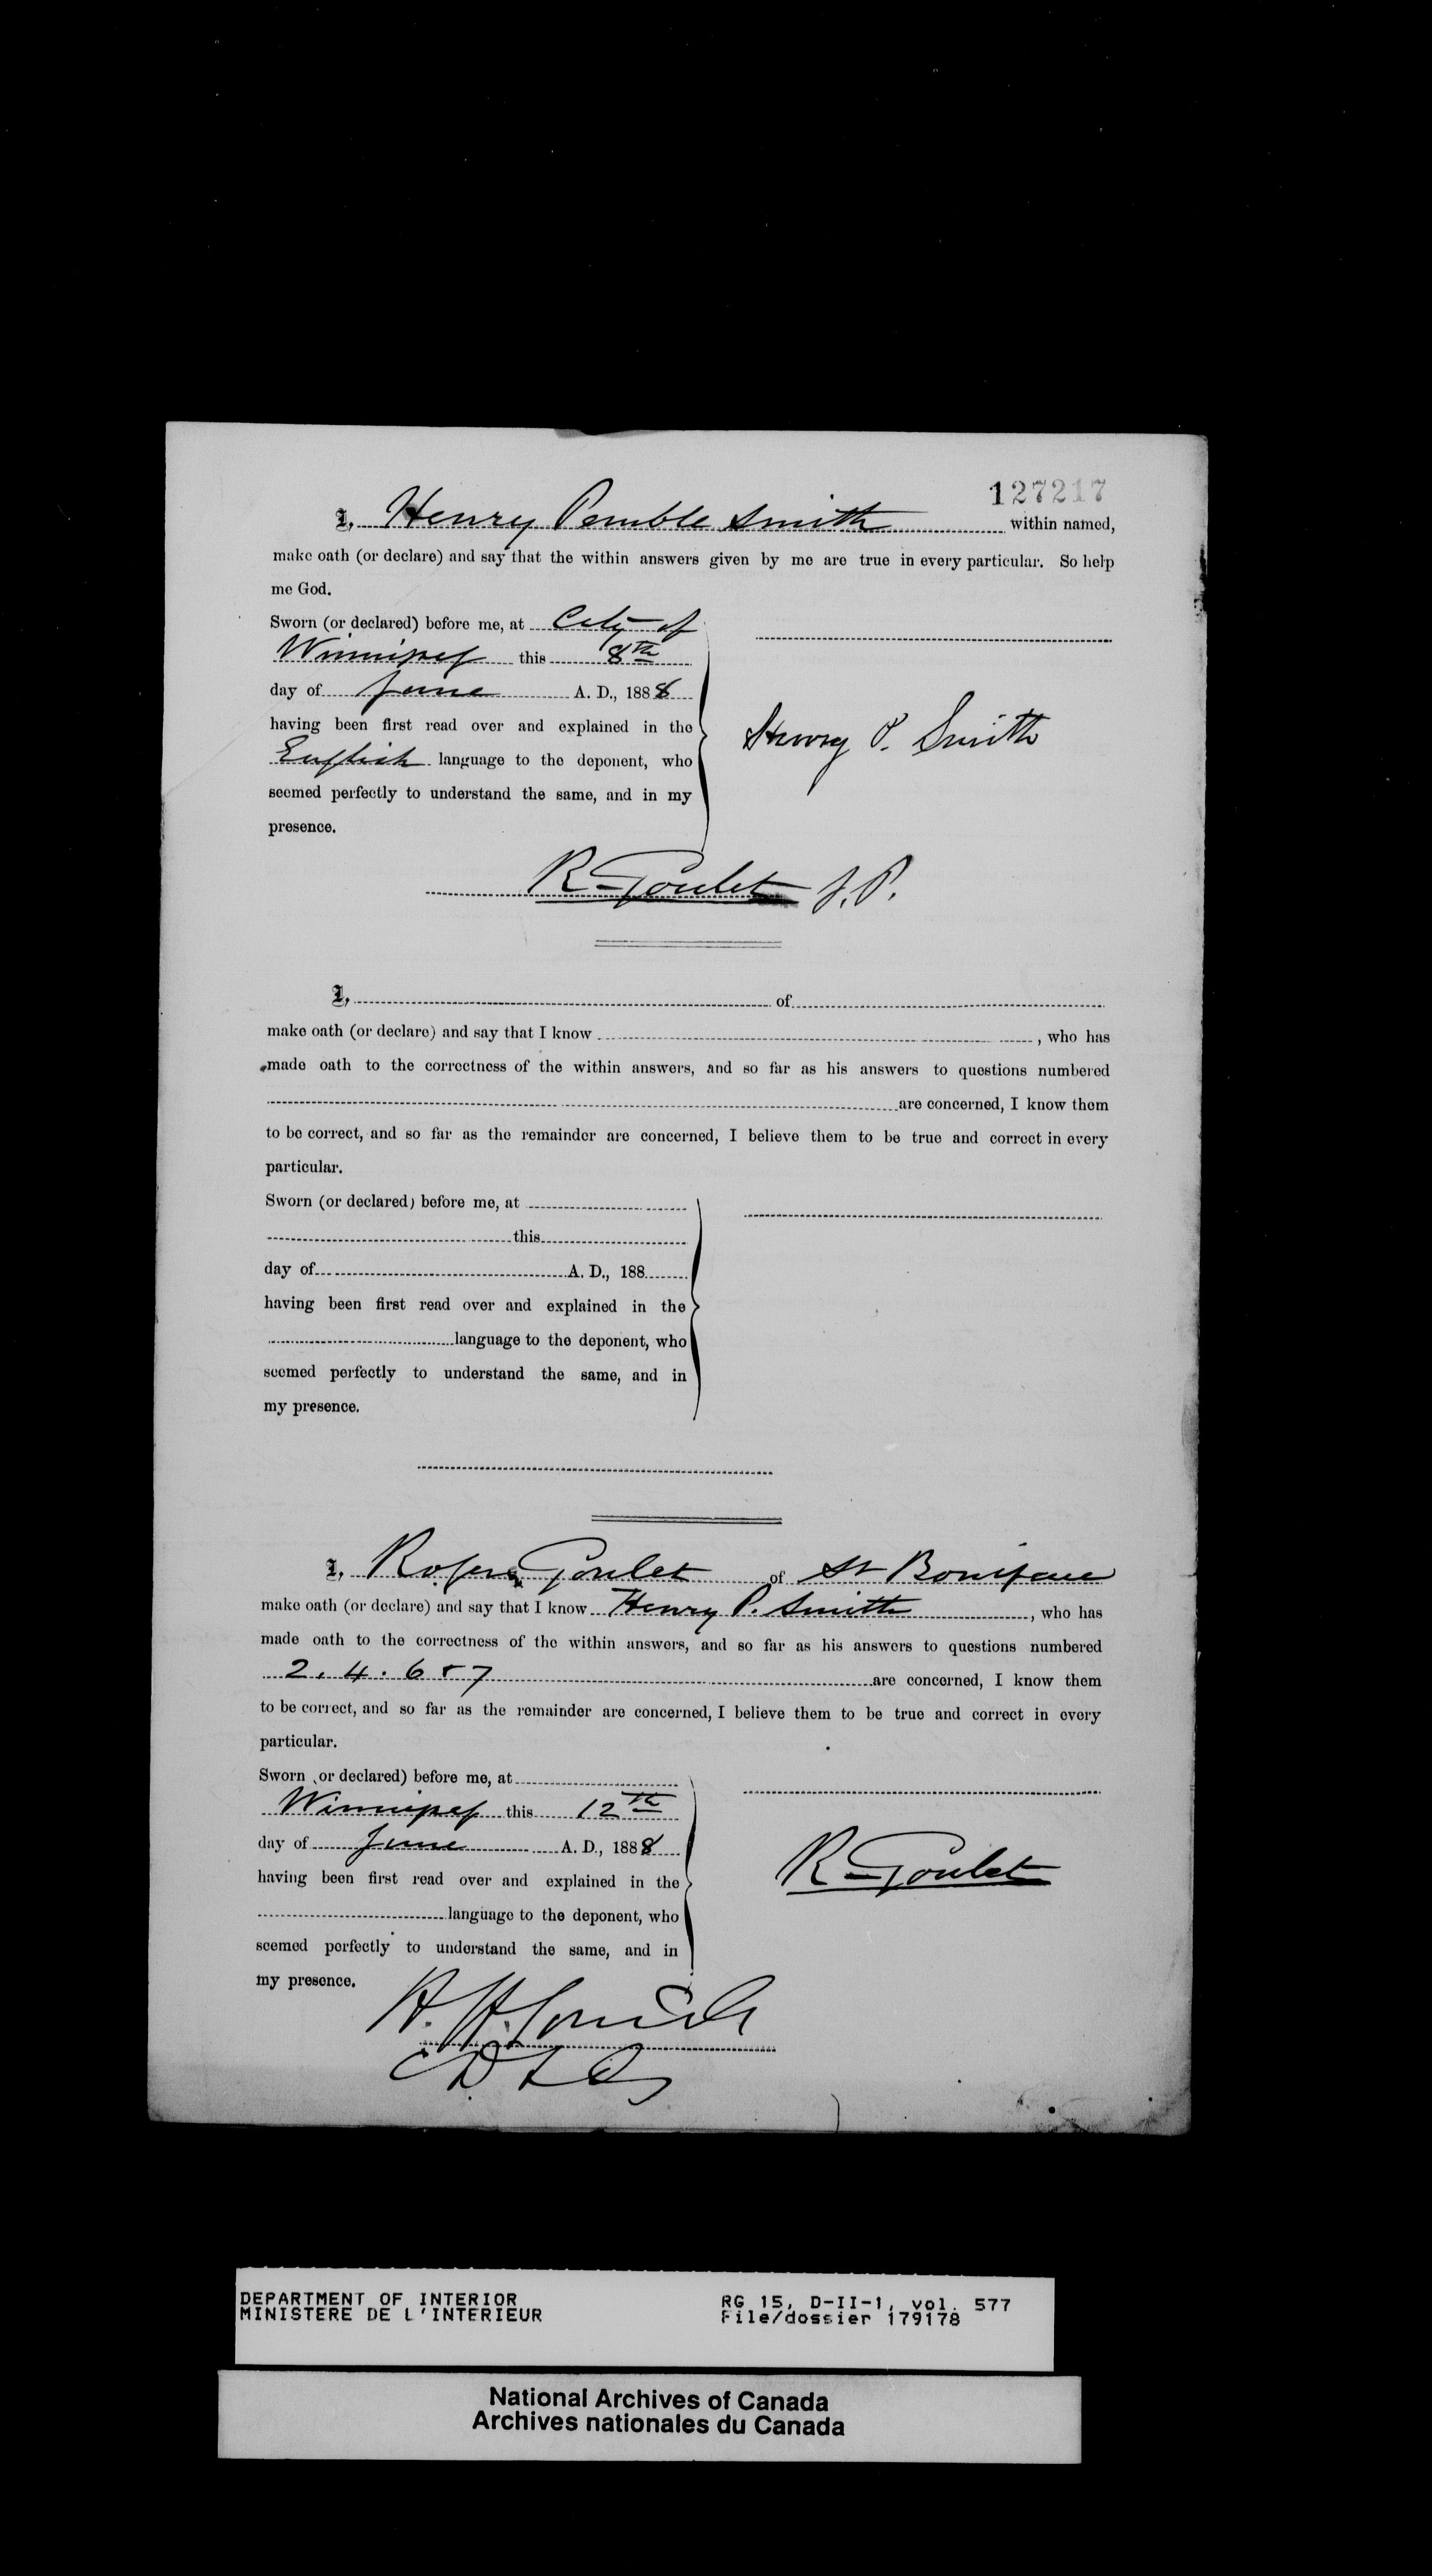 127217
I, Henry Pemble Smith within named,
make oath (or declare) and say that the within answers given by me are true in every particular. So help
me God.
Sworn (or declared) before me, at City of
Winnipeg this 8th
day of June A. D., 1888
having been first read over and explained in the
English language to the deponent, who
seemed perfectly to understand the same, and in my
presence.
Henry P. Smith
R Goulet J.P.
I, of
make oath (or declare) and say that I know , who has
made oath to the correctness of the within answers, and so far as his answers to questions numbered
are concerned, I know them
to be correct, and so far as the remainder are concerned, I believe them to be true and correct in every
particular.
Sworn (or declared) before me, at
this
day of A. D., 188
having been first read over and explained in the
language to the deponent, who
seemed perfectly to understand the same, and in
my presence.
I, Roger Goulet of St Boniface
make oath (or declare) and say that I know Henry P. Smith , who has
made oath to the correctness of the within answers, and so far as his answers to questions numbered
2. 4. 6 & 7 are concerned, I know them
to be correct, and so far as the remainder are concerned, I believe them to be true and correct in every
particular.
Sworn (or declared) before me, at
Winnipeg this 12th
day of June A. D., 1888
having been first read over and explained in the
language to the deponent, who
seemed perfectly to understand the same, and in
my presence.
R Goulet
DEPARTMENT OF INTERIOR
MINISTERE DE L'INTERIEUR
RG 15, D-II-1, vol. 577
File/dossier 179178
National Archives of Canada
Archives nationales du Canada